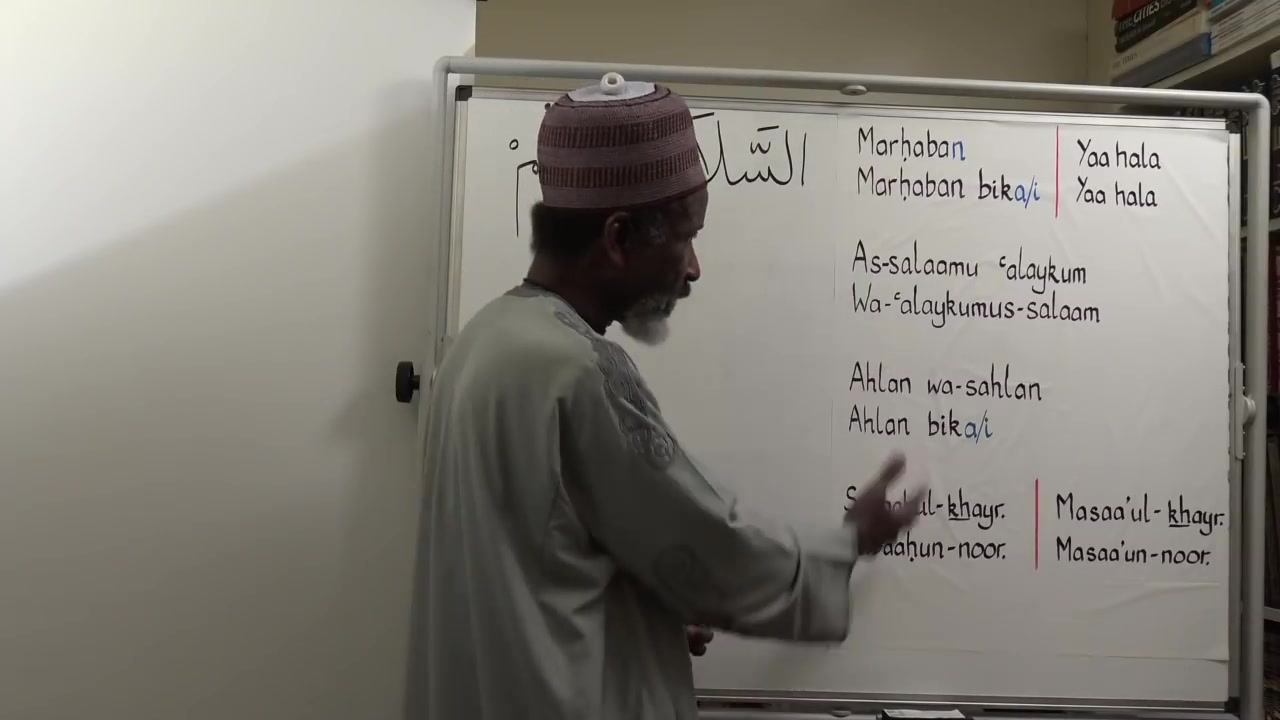 Marḥaban
Marḥaban bika/i
Yaa hala
Yaa hala
As-salaamu ʿalaykum
Wa-ʿalaykumus-salaam
Ahlan wa-sahlan
Ahlan bika/i
ul-khayr.
aaḥun-noor.
Masaa'ul-khayr.
Masaa'un-noor.
THE CITIES